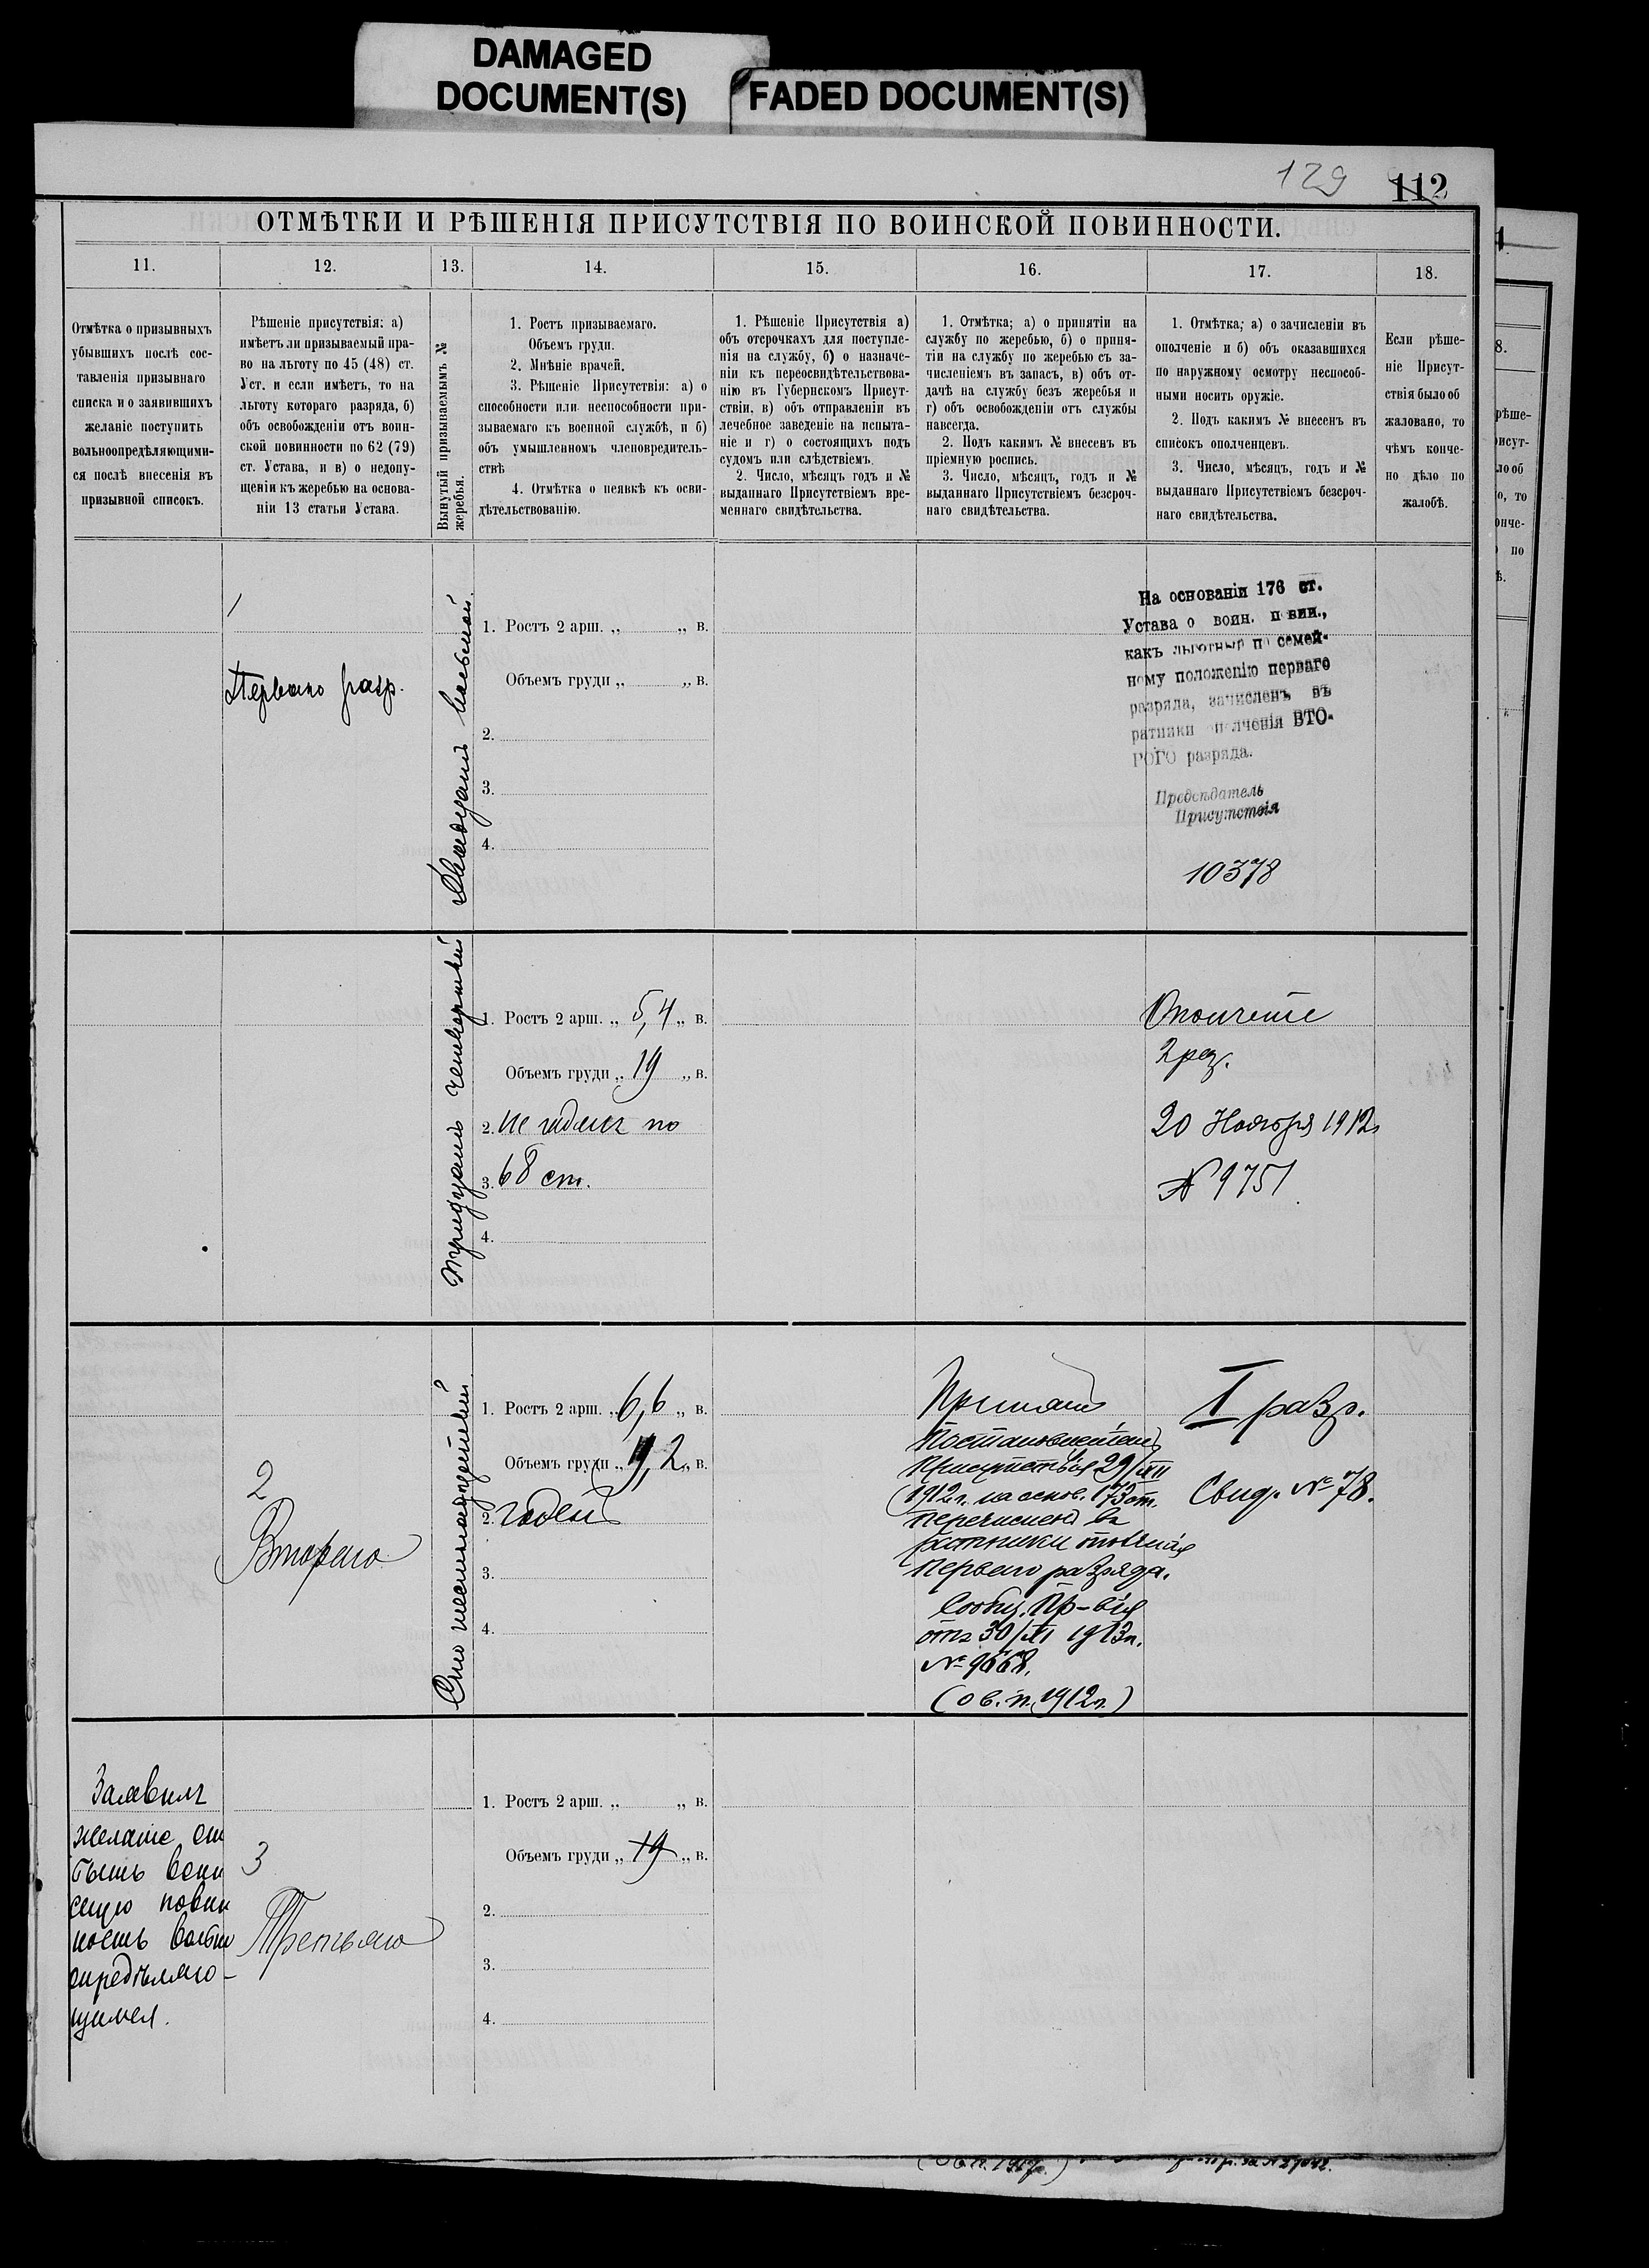 DAMAGED
DOCUMENT(S)
FADED DOCUMENT(S)
129 112
ОТМѢТКИ И РѢШЕНІЯ ПРИСУТСТВІЯ ПО ВОИНСКОЙ ПОВИННОСТИ.
11.
12.
13.
14.
15.
16.
17.
18.
Отмѣтка о призывныхъ
убывшихъ послѣ сос-
тавленія призывнаго
списка и о заявившихъ
желаніе поступить
вольноопредѣляющими-
ся послѣ внесенія въ
призывной списокъ.
Рѣшеніе присутствія: а)
имѣетъ ли призываемый пра-
во на льготу по 45 (48) ст.
Уст. и если имѣетъ, то на
льготу котораго разряда, б)
объ освобожденіи отъ воин-
ской повинности по 62 (79)
ст. Устава, и в) о недопу-
щеніи къ жеребью на основа-
ніи 13 статьи Устава.
Вынутый призываемымъ №
жеребья.
1. Ростъ призываемаго.
Объемъ груди.
2. Мнѣніе врачей.
3. Рѣшеніе Присутствія: а) о
способности или неспособности при-
зываемаго къ военной службѣ, и б)
объ умышленномъ членовредитель-
ствѣ
4. Отмѣтка о неявкѣ къ осви-
дѣтельствованію.
1. Рѣшеніе Присутствія а)
объ отсрочкахъ для поступле-
нія на службу, б) о назначе-
ніи къ переосвидѣтельствова-
нію въ Губернскомъ Присут-
ствіи, в) объ отправленіи въ
лечебное заведеніе на испыта-
ніе и г) о состоящихъ подъ
судомъ или слѣдствіемъ.
2. Число, мѣсяцъ годъ и №
выданнаго Присутствіемъ вре-
меннаго свидѣтельства.
1. Отмѣтка; а) о принятіи на
службу по жеребью, б) о приня-
тіи на службу по жеребью съ за-
численіемъ въ запасъ, в) объ от-
дачѣ на службу безъ жеребья и
г) объ освобожденіи отъ службы
навсегда.
2. Подъ какимъ № внесенъ въ
пріемную роспись.
3. Число, мѣсяцъ, годъ и №
выданнаго Присутствіемъ безсроч-
наго свидѣтельства.
1. Отмѣтка; а) о зачисленіи въ
ополченіе и б) объ оказавшихся
по наружному осмотру неспособ-
ными носить оружіе.
2. Подъ какимъ № внесенъ въ
списокъ ополченцевъ.
3. Число, мѣсяцъ, годъ и №
выданнаго Присутствіемъ безсроч-
наго свидѣтельства.
Если рѣше-
ніе Присут-
ствія было об
жаловано, то
чѣмъ конче-
но дѣло по
жалобѣ.
1
Перваго разр.
Двадцать восьмой
1. Ростъ 2 арш. „ „ в.
Объемъ груди „ „ в.
2.
3.
4.
На основаніи 176 ст.
Устава о воин. повин.,
какъ льготный по семей-
ному положенію перваго
разряда, зачисленъ въ
ратники ополченія ВТО-
РОГО разряда.
Предсѣдатель
Присутствія
10378
Тридцать четвертый
1. Ростъ 2 арш. „ 5,4 „ в.
Объемъ груди „ 19 „ в.
2. не годенъ по
3. 68 ст.
4.
Ополченіе
2 раз.
20 Ноября 1912
№ 9751
2
Второго
Сто шестнадцатый
1. Ростъ 2 арш. „ 6,6 „ в.
Объемъ груди „ 2 „ в.
2. годенъ
3.
4.
Принятъ
Постановленіемъ
Присутствія 29/XII
1912 г. на основ. 173 ст.
перечисленъ въ
ратники ополченія
перваго разряда.
Сообщ. Пр-вія
отъ 30/XI 1913 г.
№ 9668.
(о в. п. 1912 г.)
I разр.
Свид. № 78.
Заявилъ
желаніе от
быть воин
скую повин
ность вольно
опредѣляю-
щимся.
3
Третьяго
1. Ростъ 2 арш. „ „ в.
Объемъ груди „ 19 „ в.
2.
3.
4.